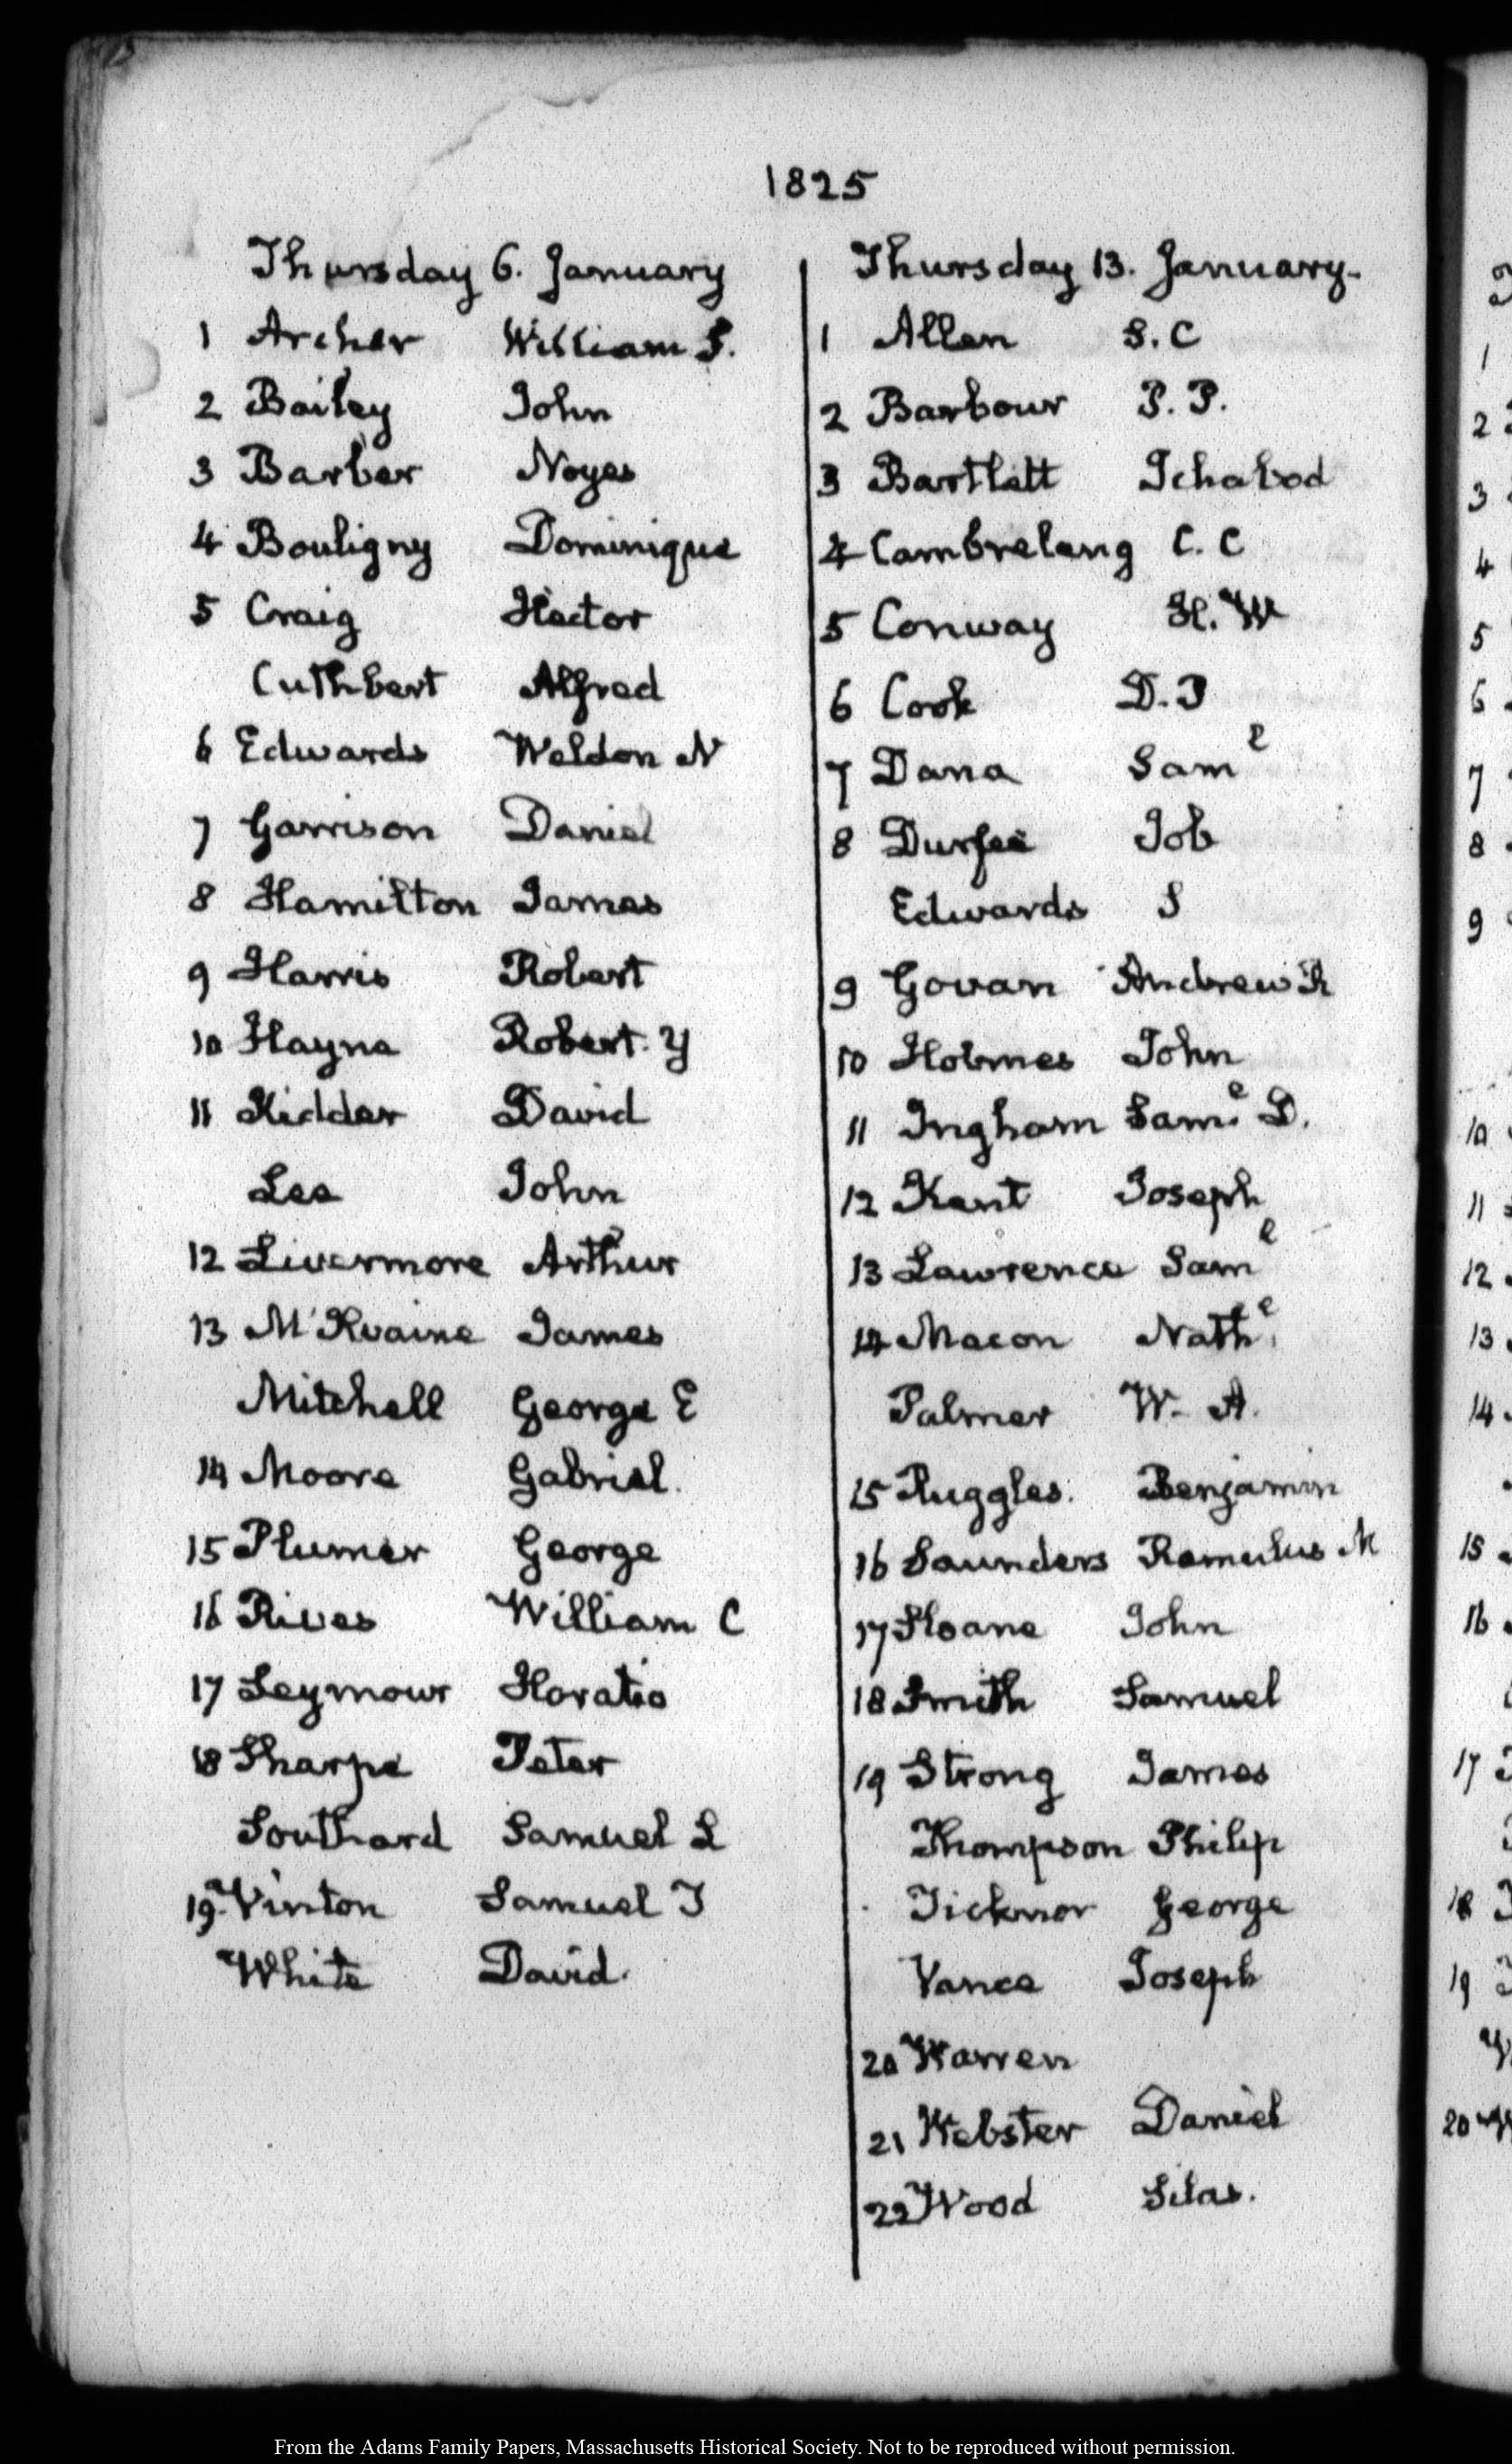 1825
Thursday 6. January
1 Archer William S.
2 Bailey John
3 Barber Noyes
4 Bouligny Dominique
5 Craig Hector
Cuthbert Alfred
6 Edwards Weldon N
7 Garrison Daniel
8 Hamilton James
9 Harris Robert
10 Hayne Robert. Y
11 Kidder David
Lee John
12 Livermore Arthur
13 M'Kvaine James
Mitchell George E
14 Moore Gabriel.
15 Plumer George
16 Rives William C
17 Seymour Horatio
18 Sharpe Peter
Southard Samuel L
19 Vinton Samuel F
White David.
Thursday 13. January.
1 Allen S. C
2 Barbour P. P.
3 Bartlett Ichabod
4 Cambreleng C. C
5 Conway H. W
6 Cook D. P
7 Dana Saml
8 Durfee Job
Edwards S
9 Govan Andrew R
10 Holmes John
11 Ingham Saml. D.
12 Kent Joseph
13 Lawrence Saml
14 Macon Nathl.
Palmer W. A.
15 Ruggles. Benjamin
16 Saunders Romulus M
17 Sloane John
18 Smith Samuel
19 Strong James
Thompson Philip
Ticknor George
Vance Joseph
20 Warren
21 Webster Daniel
22 Wood Silas.
1
2
3
4
5
6
7
8
9
10
11
12
13
14
15
16
17
18
19
20
From the Adams Family Papers, Massachusetts Historical Society. Not to be reproduced without permission.